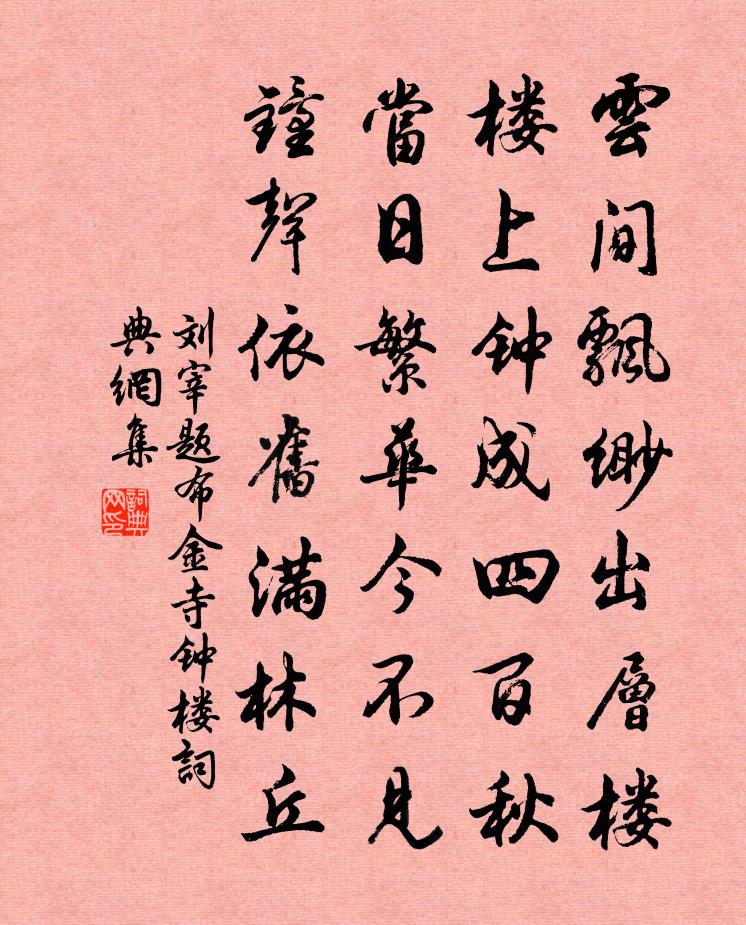 雲間飄緲出層楼
楼上钟成四百秋
當日繁華今不見
鐘聲依舊满林丘
刘宰题布金寺钟楼詞
典網集
詞典网印